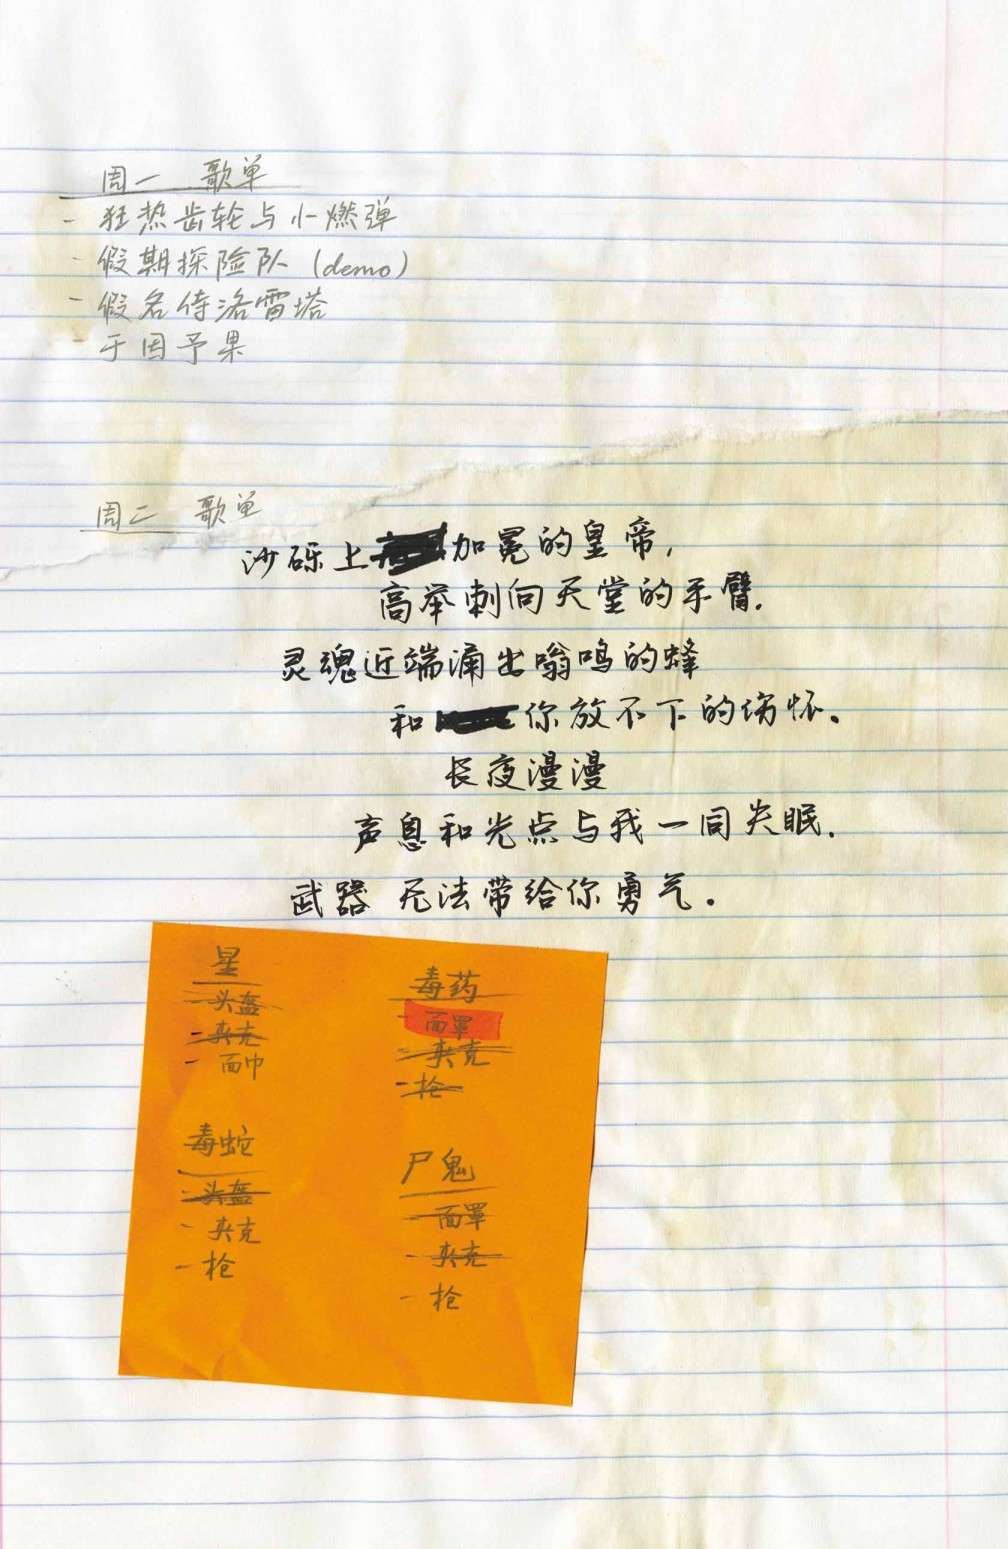 周一 歌单
- 狂热齿轮与小燃弹
- 假期探险队 (demo)
- 假名侍洛雷塔
于因予果
周二 歌单
沙砾上加冕的皇帝,
高举刺向天堂的手臂.
灵魂近端滴出嗡鸣的蜂
和你放不下的伤怀。
长夜漫漫
声息和光点与我一同失眠.
武器 无法带给你勇气。
星
- 头盔
- 夹克
- 面巾
毒药
- 面罩
- 夹克
- 枪
毒蛇
- 头盔
- 夹克
- 枪
尸鬼
- 面罩
- 夹克
- 枪